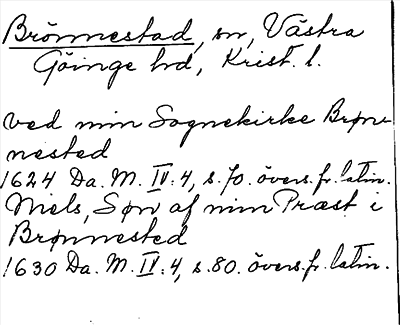 Brönnestad, sn, Västra
Göinge hd, Krist. l.
ved min Sognekirke Brøn-
nested
1624 Da. M. IV: 4, s. 70. övers. fr. latin.
Niels, Søn af min Præst i
Brønnested
1630 Da. M. IV: 4, s. 80. övers. fr. latin.